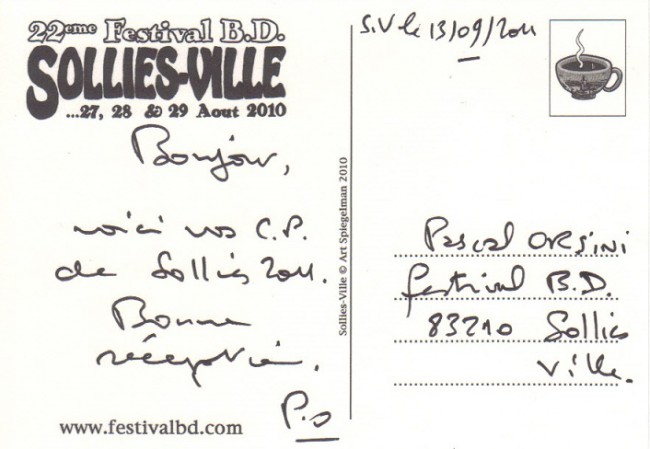 22eme Festival B.D.
SOLLIES-VILLE
...27, 28 & 29 Aout 2010
Bonjour,
voici vos C.P.
de Sollies 2011.
Bonne
réception.
P.O
www.festivalbd.com
Sollies-Ville © Art Spiegelman 2010
S.V le 13/09/2011
Pascal ORSINI
festival B.D.
83210 Sollies
Ville.